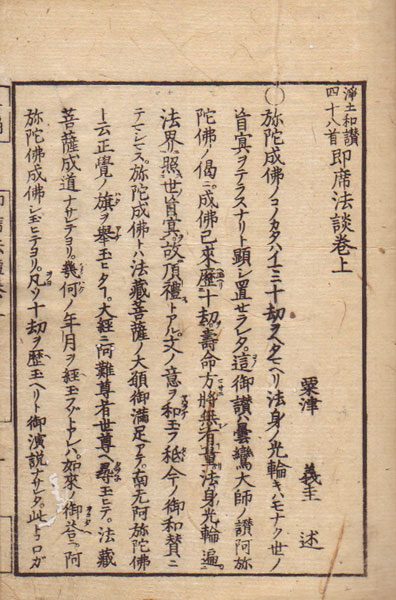 淨土和讃
四十八首
即席法談卷上
粟津 義圭 述
〇弥陀成佛ノコノカタハイマニ十劫ヲヘタマヘリ法身ノ光輪キハモナク世ノ
盲冥ヲテラスナリト顕シ置セラレタ。這御讃ハ曇鸞大師ノ讃阿弥
陀佛ノ偈ニ。成佛已來歴十劫。壽命方將無有量。法身光輪遍
法界。照世盲冥故頂禮トアル。文ノ意ヲ和玉ヲ秖今ノ御和賛ニ
テマシマス。弥陀成佛トハ法藏菩薩ノ大願御満足アテ。南无阿弥陀佛
ト云正覺ノ旗ヲ舉玉ヒタ。大經ニ阿難尊者世尊ヘ尋玉ヒテ。法藏
菩薩成道ナサレテヨリ。幾何ノ年月ヲ經玉フゾトアレハ。如來ノ御答ニ阿
弥陀佛成佛シ玉ヒテヨリ。凡ソ十劫ヲ歴玉ヘリト御演説ナサレタ。此トコロガ